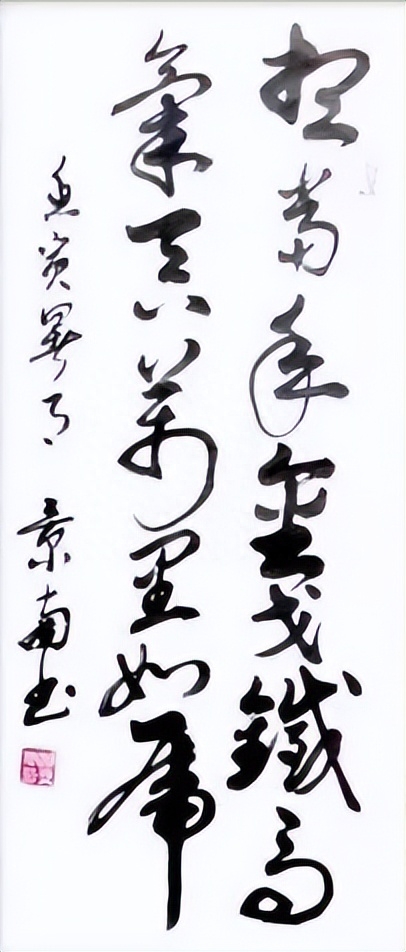 想當年金戈鐵馬
氣吞萬里如虎
寅暑月 景南书